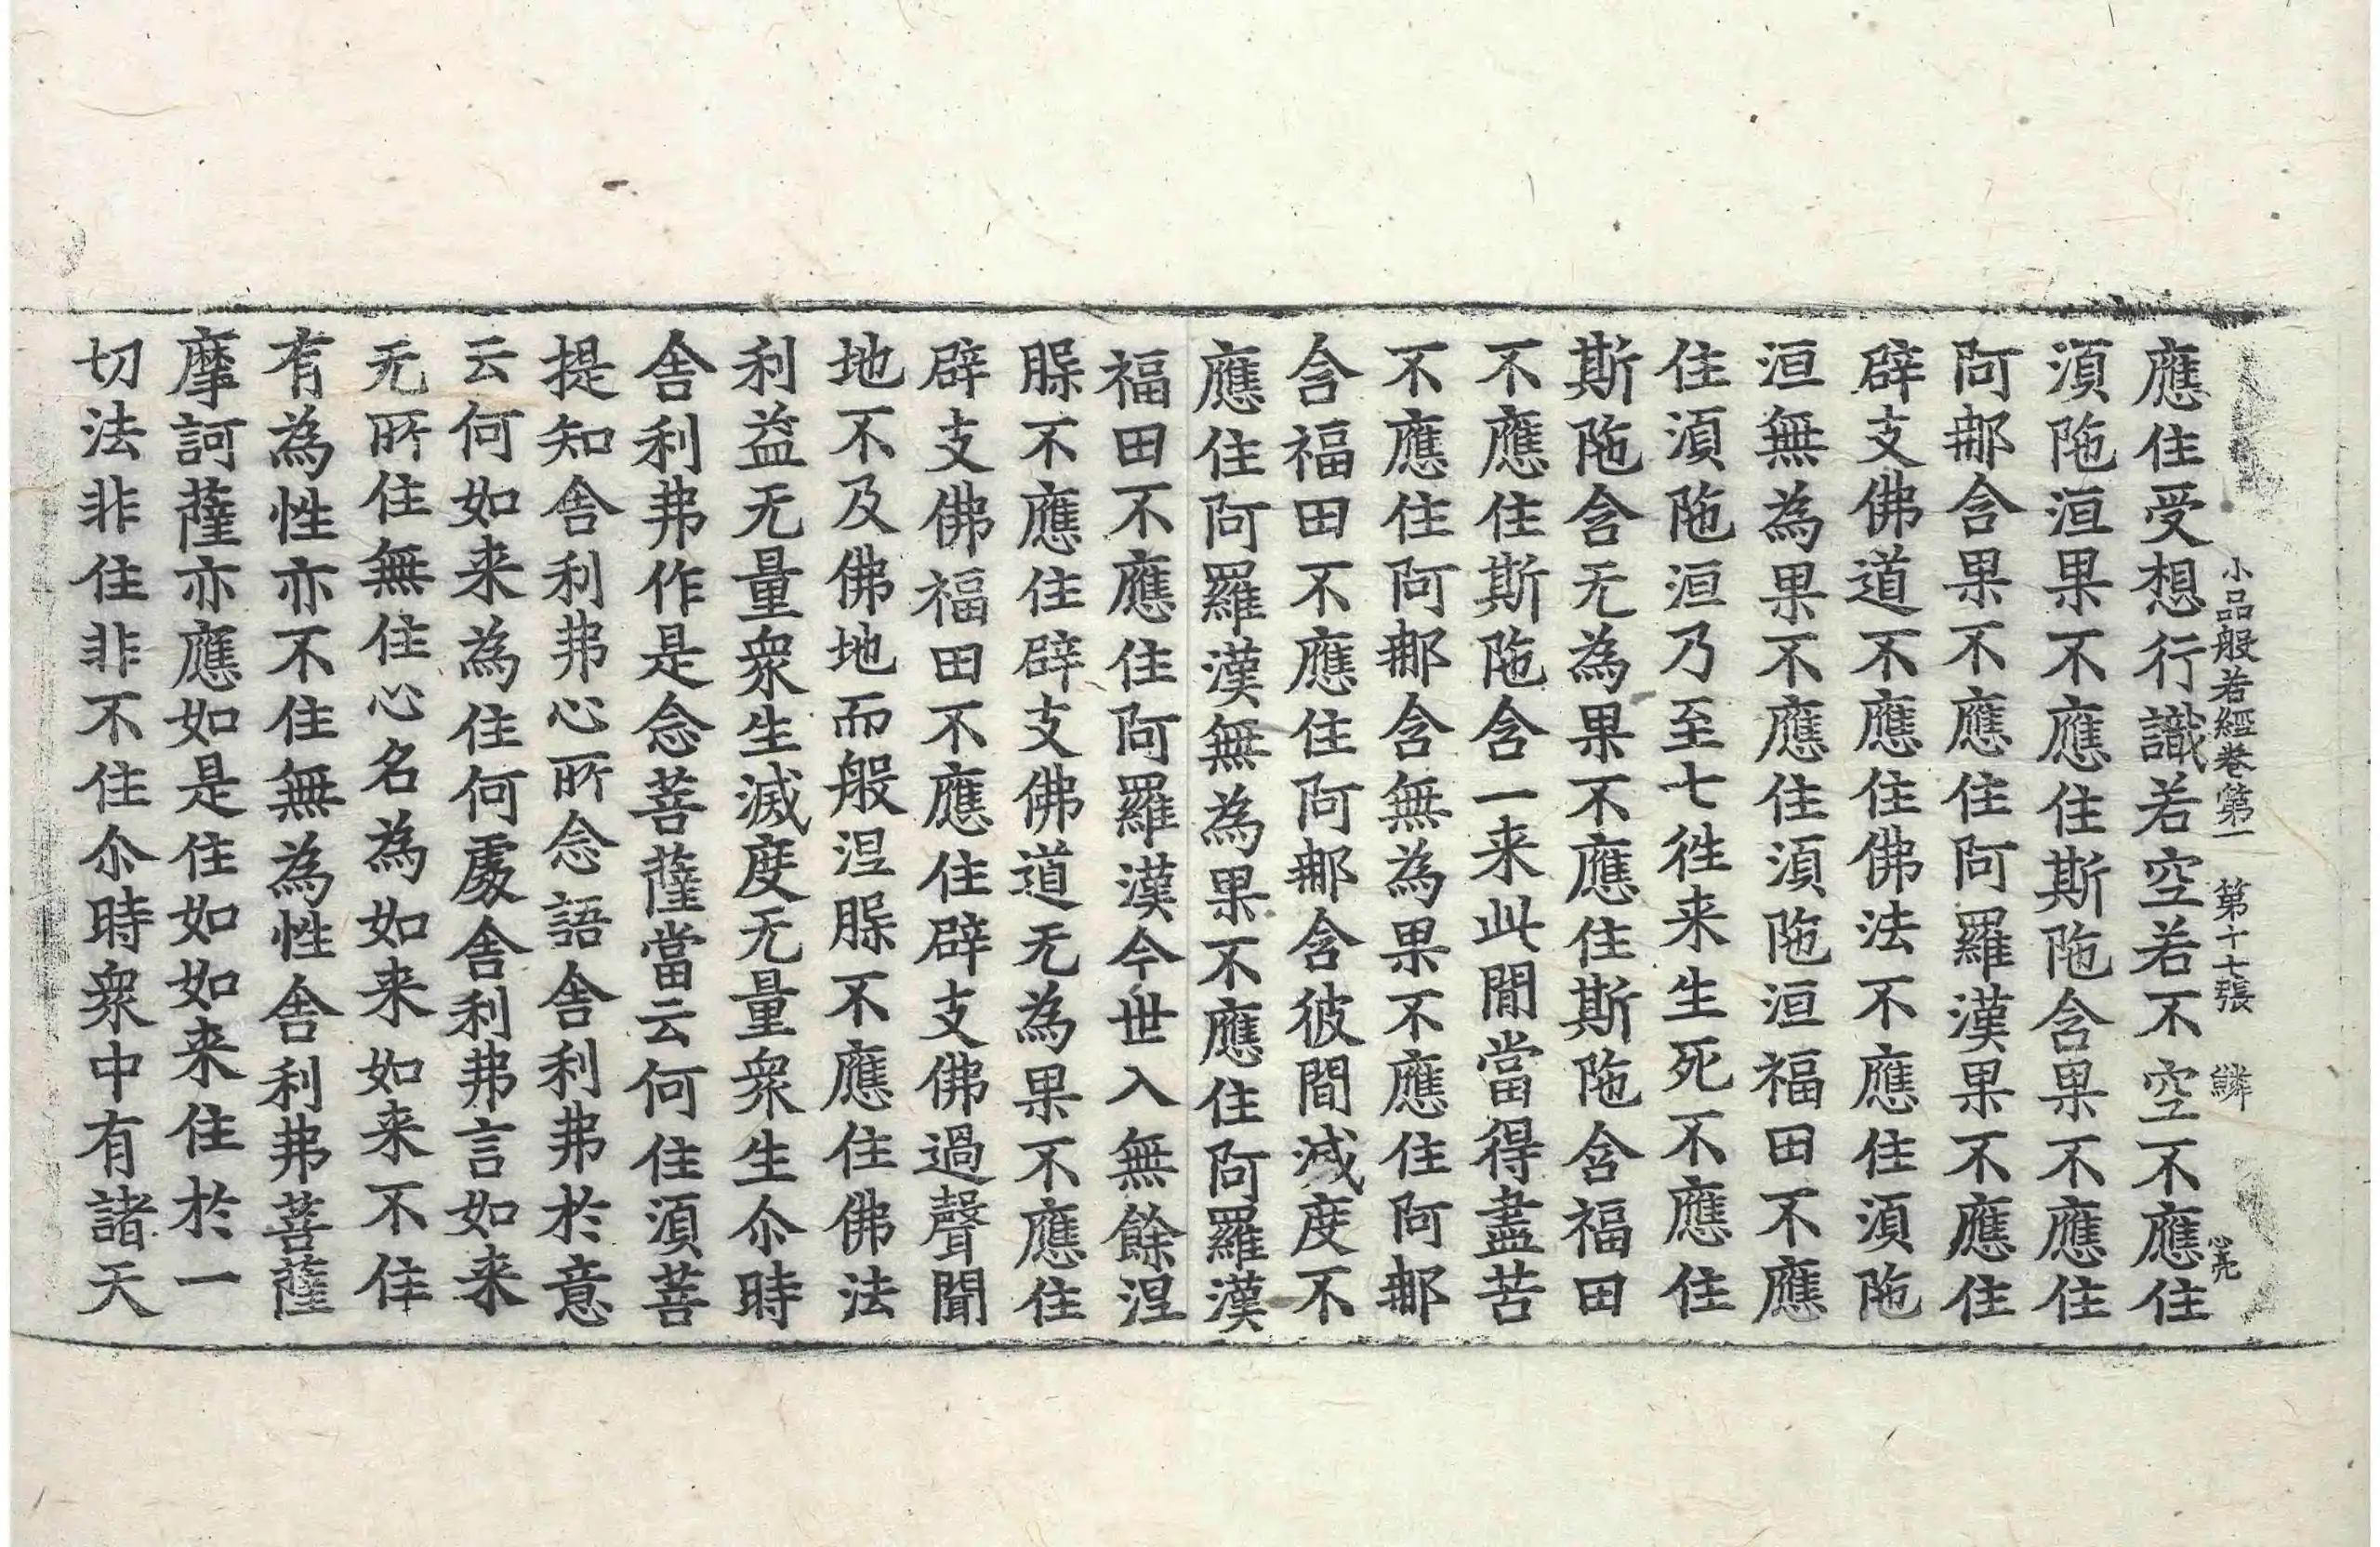 小品般若經卷第一　第十七張　鱗
應住受想行識若空若不空不應住
須陁洹果不應住斯陁含果不應住
阿那含果不應住阿羅漢果不應住
辟支佛道不應住佛法不應住須陁
洹無為果不應住須陁洹福田不應
住須陁洹乃至七徃来生死不應住
斯陁含无為果不應住斯陁含福田
不應住斯陁含一来此閒當得盡苦
不應住阿那含無為果不應住阿那
含福田不應住阿那含彼間滅度不
應住阿羅漢無為果不應住阿羅漢
福田不應住阿羅漢今世入無餘涅
脲不應住辟支佛道无為果不應住
辟支佛福田不應住辟支佛過聲聞
地不及佛地而般涅脲不應住佛法
利益无量衆生滅度无量衆生尒時
舎利弗作是念菩薩當云何住須菩
提知舎利弗心所念語舎利弗於意
云何如来為住何處舎利弗言如来
无所住無住心名為如来如来不住
有為性亦不住無為性舎利弗菩薩
摩訶薩亦應如是住如如来住於一
切法非住非不住尒時衆中有諸天